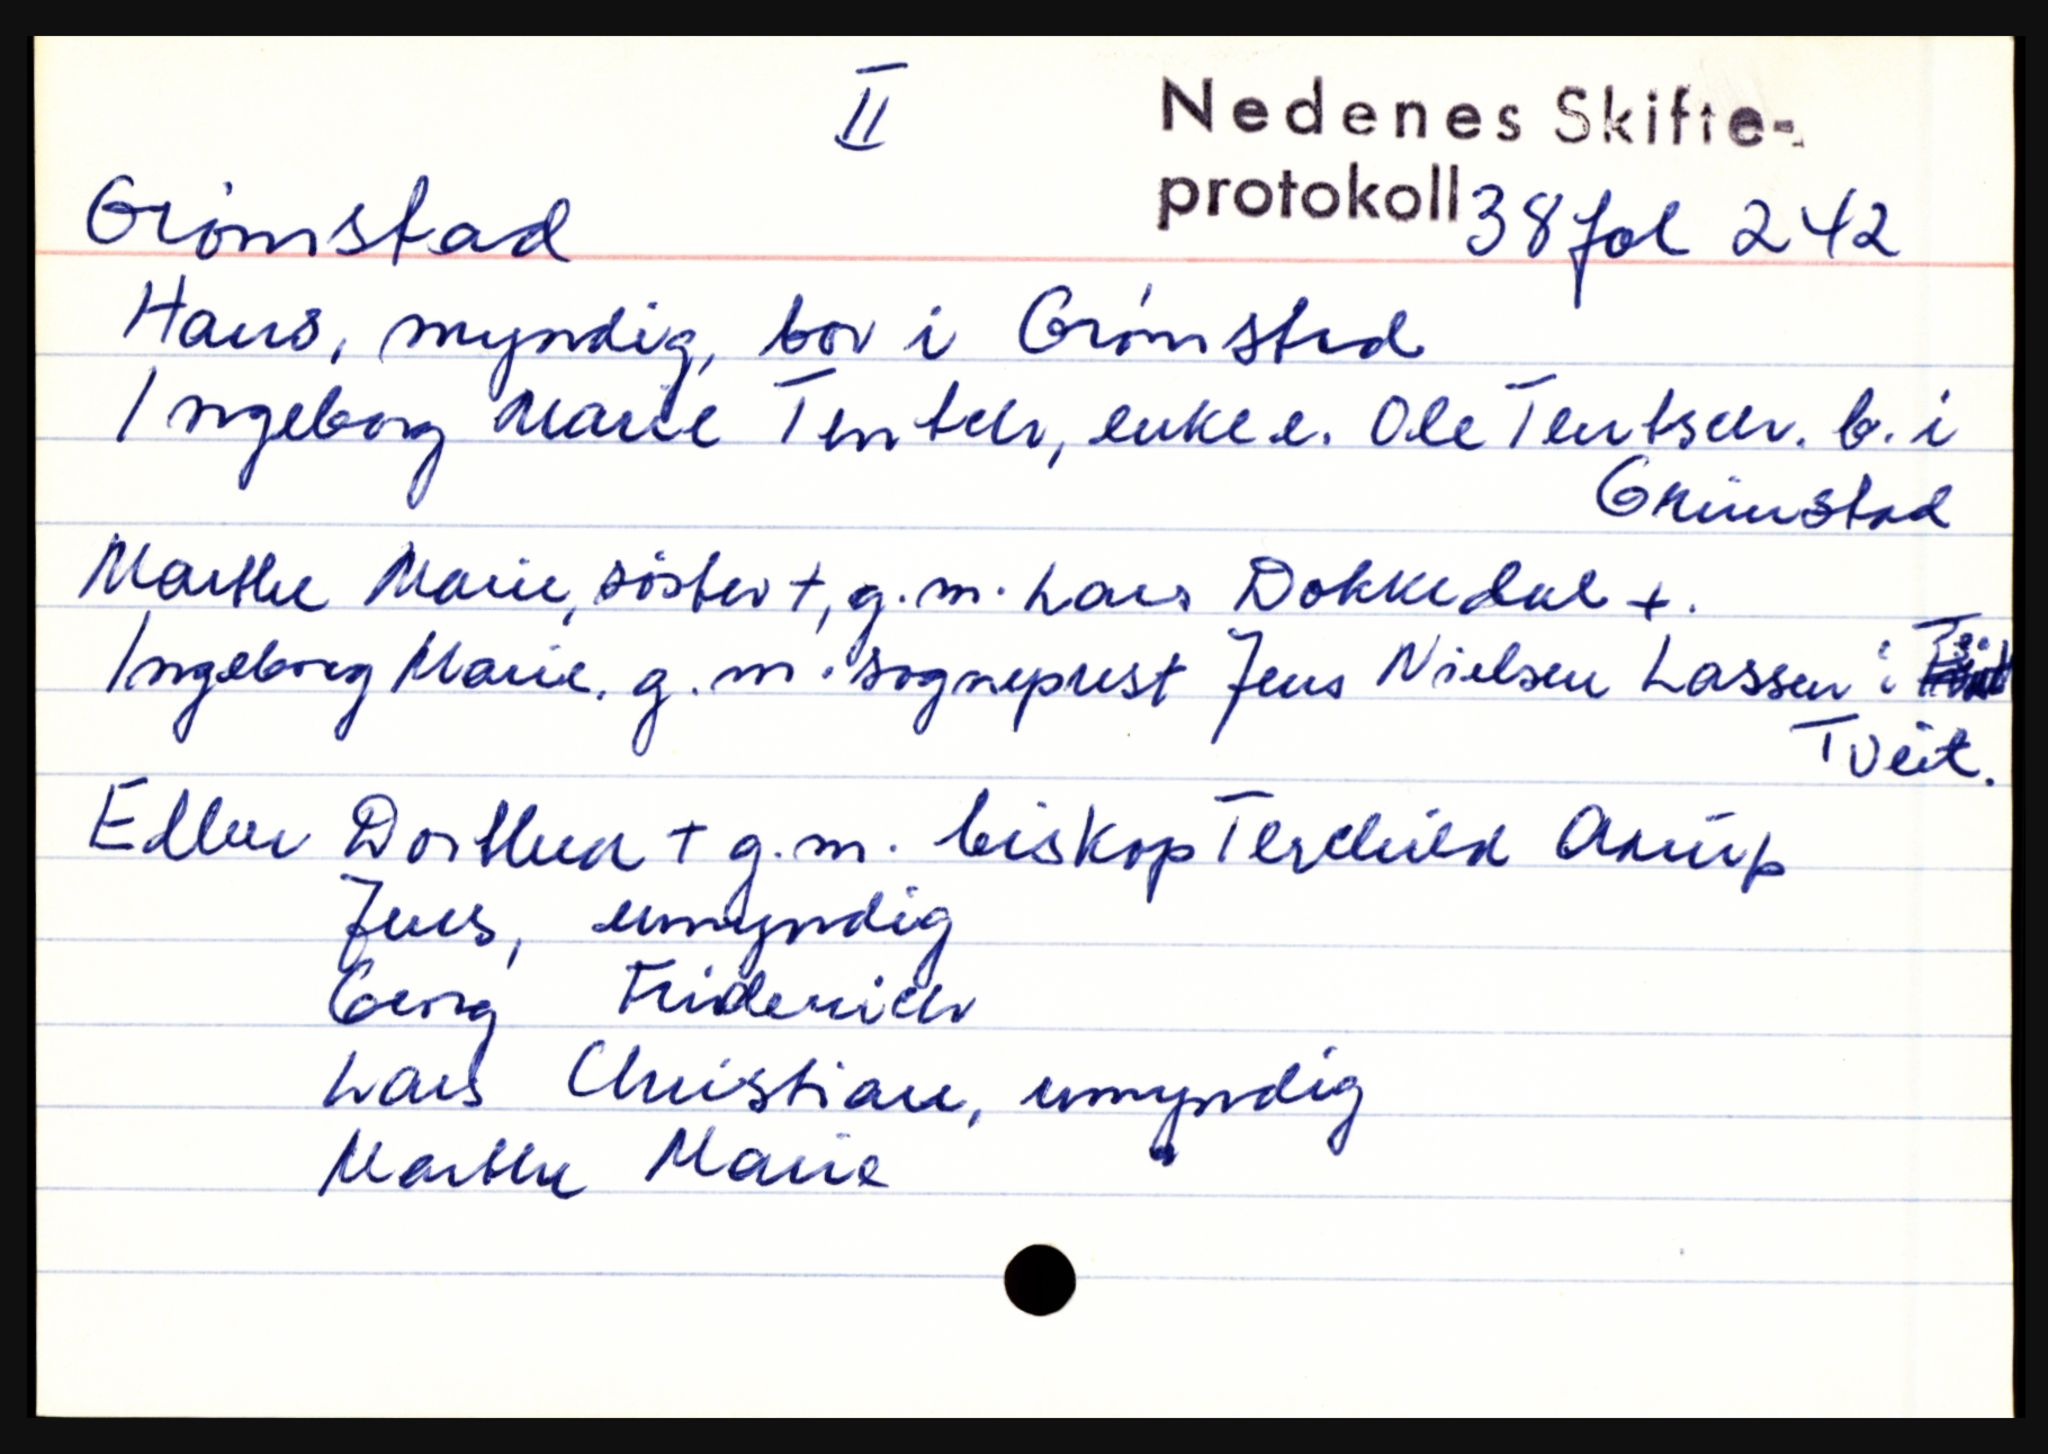 II
Nedenes Skifte-
protokoll 38 fol 242
Grimstad
Hans, myndig, bor i Grimstad
Ingeborg Marie Tentch, enke e. Ole Tentsch. b. i
Grimstad
Marthe Marie, søster +, g. m. Lars Dokkedal +.
Ingeborg Marie. g. m. sogneprest Jens Nielsen Lassen i
Tveit.
Edler Dorthea + g. m. biskop Terchild Arup
Jens, umyndig
Georg Friderich
Lars Christian, umyndig
Marthe Marie "